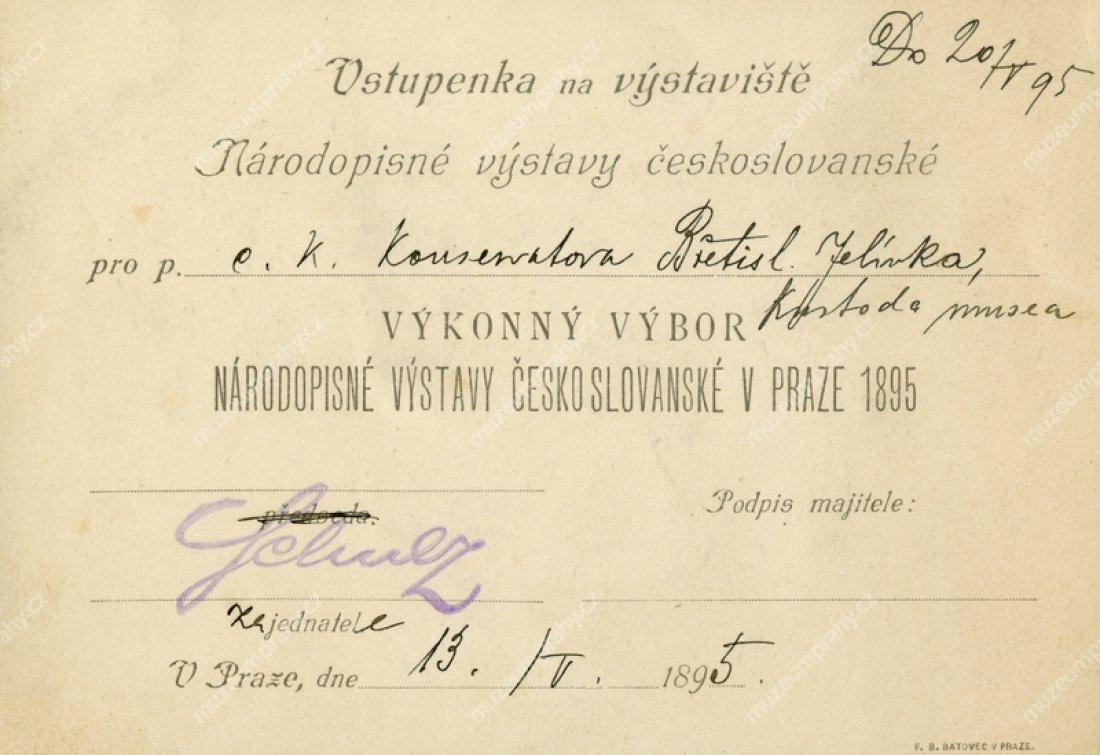 Do 20/V 95
Vstupenka na výstaviště
Národopisné výstavy československé
pro p. c. k. Konservatora Břetisl. Jelínka,
Kustoda musea
VÝKONNÝ VÝBOR
NÁRODOPISNÉ VÝSTAVY ČESKOSLOVANSKÉ V PRAZE 1895
předseda.
Podpis majitele:
Schulz
za jednatele
V Praze, dne 13. /V. 1895.
F. B. BATOVEC V PRAZE.
muzeumprahy.cz